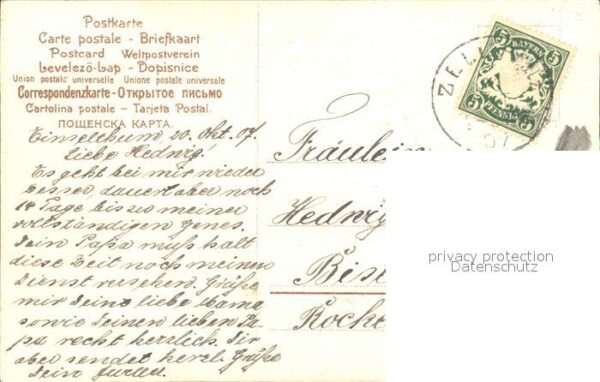 Postkarte
Carte postale - Briefkaart
Postcard Weltpostverein
Levelező-Lap - Dopisnice
Union postale universelle Unione postale universale
Correspondenzkarte - Открытое письмо
Cartolina postale - Tarjeta Postal.
ПОЩЕНСКА КАРТА.
Einselthum, 20. Okt. 07.
Liebe Hedwig!
Es geht bei mir wieder
besser, dauert aber noch
14 Tage bis zu meiner
vollständigen Genes.
Dein Papa muß halt
diese Zeit noch meinen
Dienst versehen. Grüße
mir Deine liebe Mama
sowie Deinen lieben Pa-
pa recht herzlich. Dir
aber sendet herzl. Grüße
Dein
Fräulein
Hedwig
Bis
Rocke
5 BAYERN 5
5 PFENNIG 5
ZELL
07
privacy protection
Datenschutz